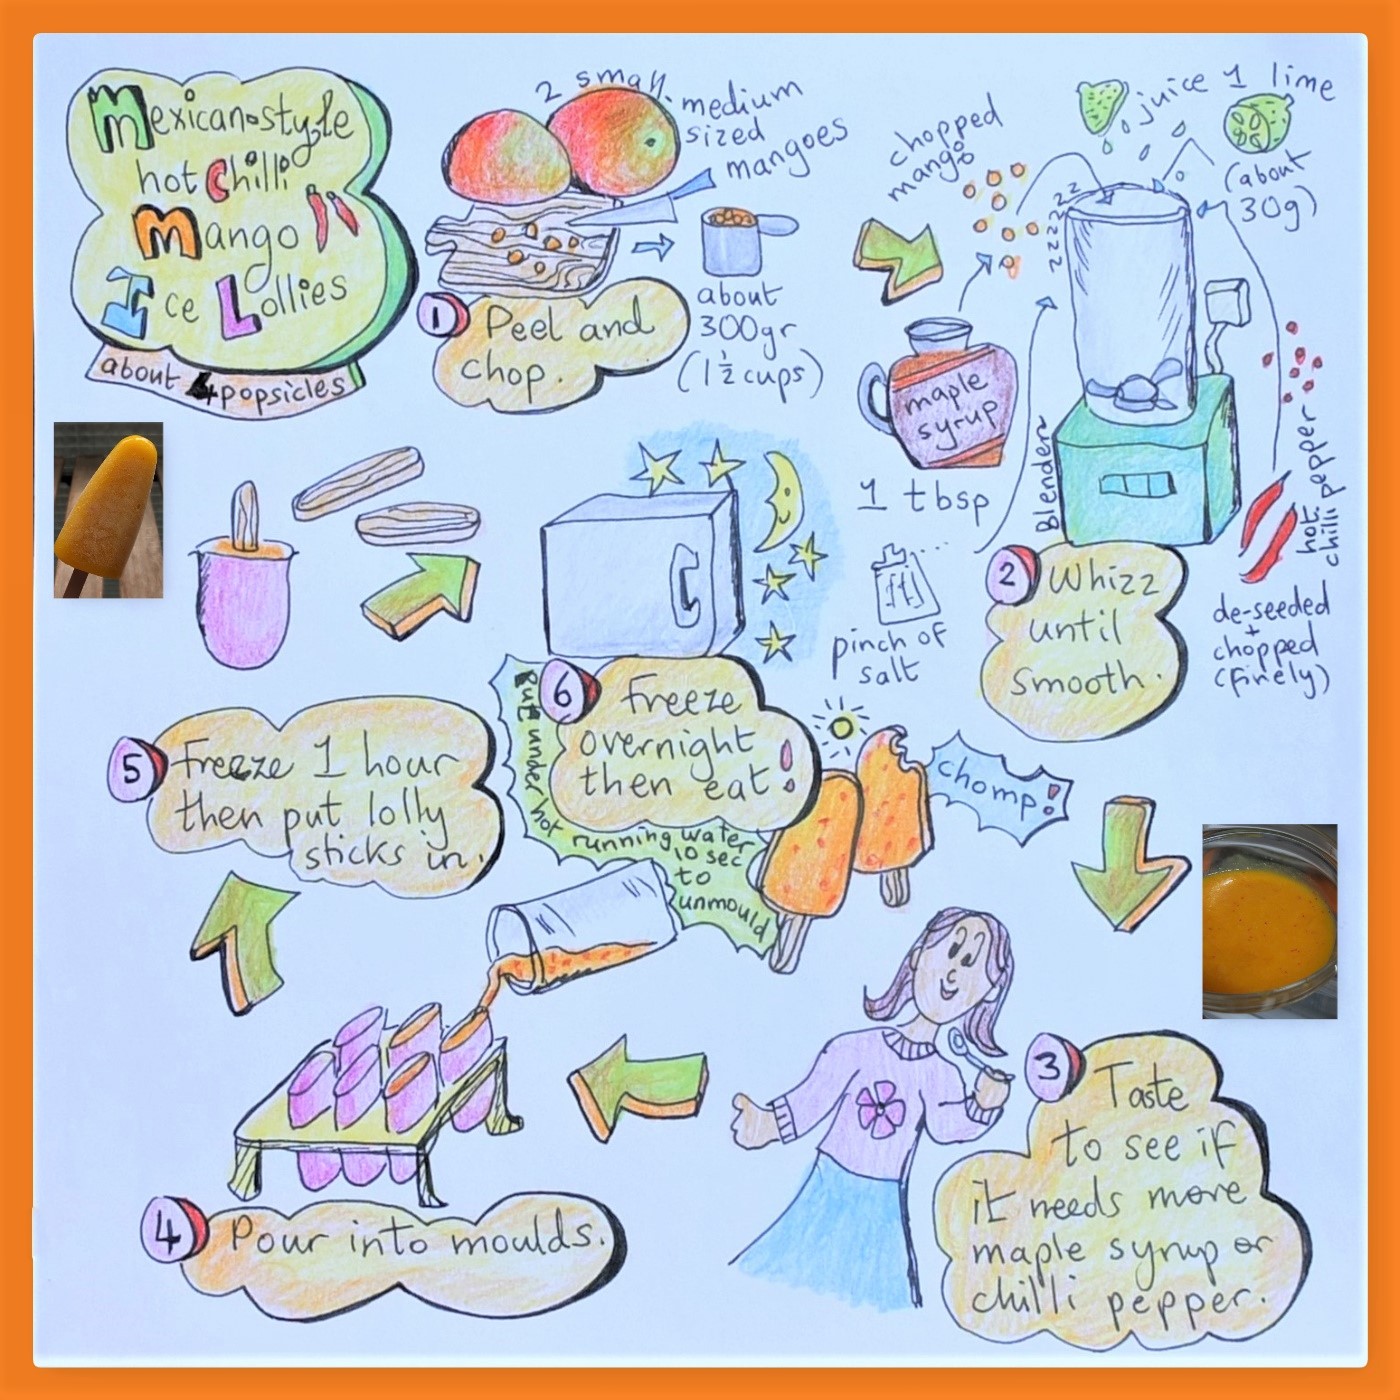 Mexican-style
hot Chilli
Mango
Ice Lollies
about 4 popsicles
2 small.
medium
sized
mangoes
about
300gr
(1½ cups)
1
Peel and
chop.
chopped
mango
juice 1 lime
(about
30g)
zzzzzz
maple
syrup
1 tbsp
Blender
pinch of
salt
hot
chilli pepper
de-seeded
+
chopped
(finely)
2
Whizz
until
smooth.
3
Taste
to see if
it needs more
maple syrup or
chilli pepper.
4
Pour into moulds.
5
Freeze 1 hour
then put lolly
sticks in.
6
Freeze
overnight
then eat!
Put under hot running water
10 sec
to
unmould
chomp!